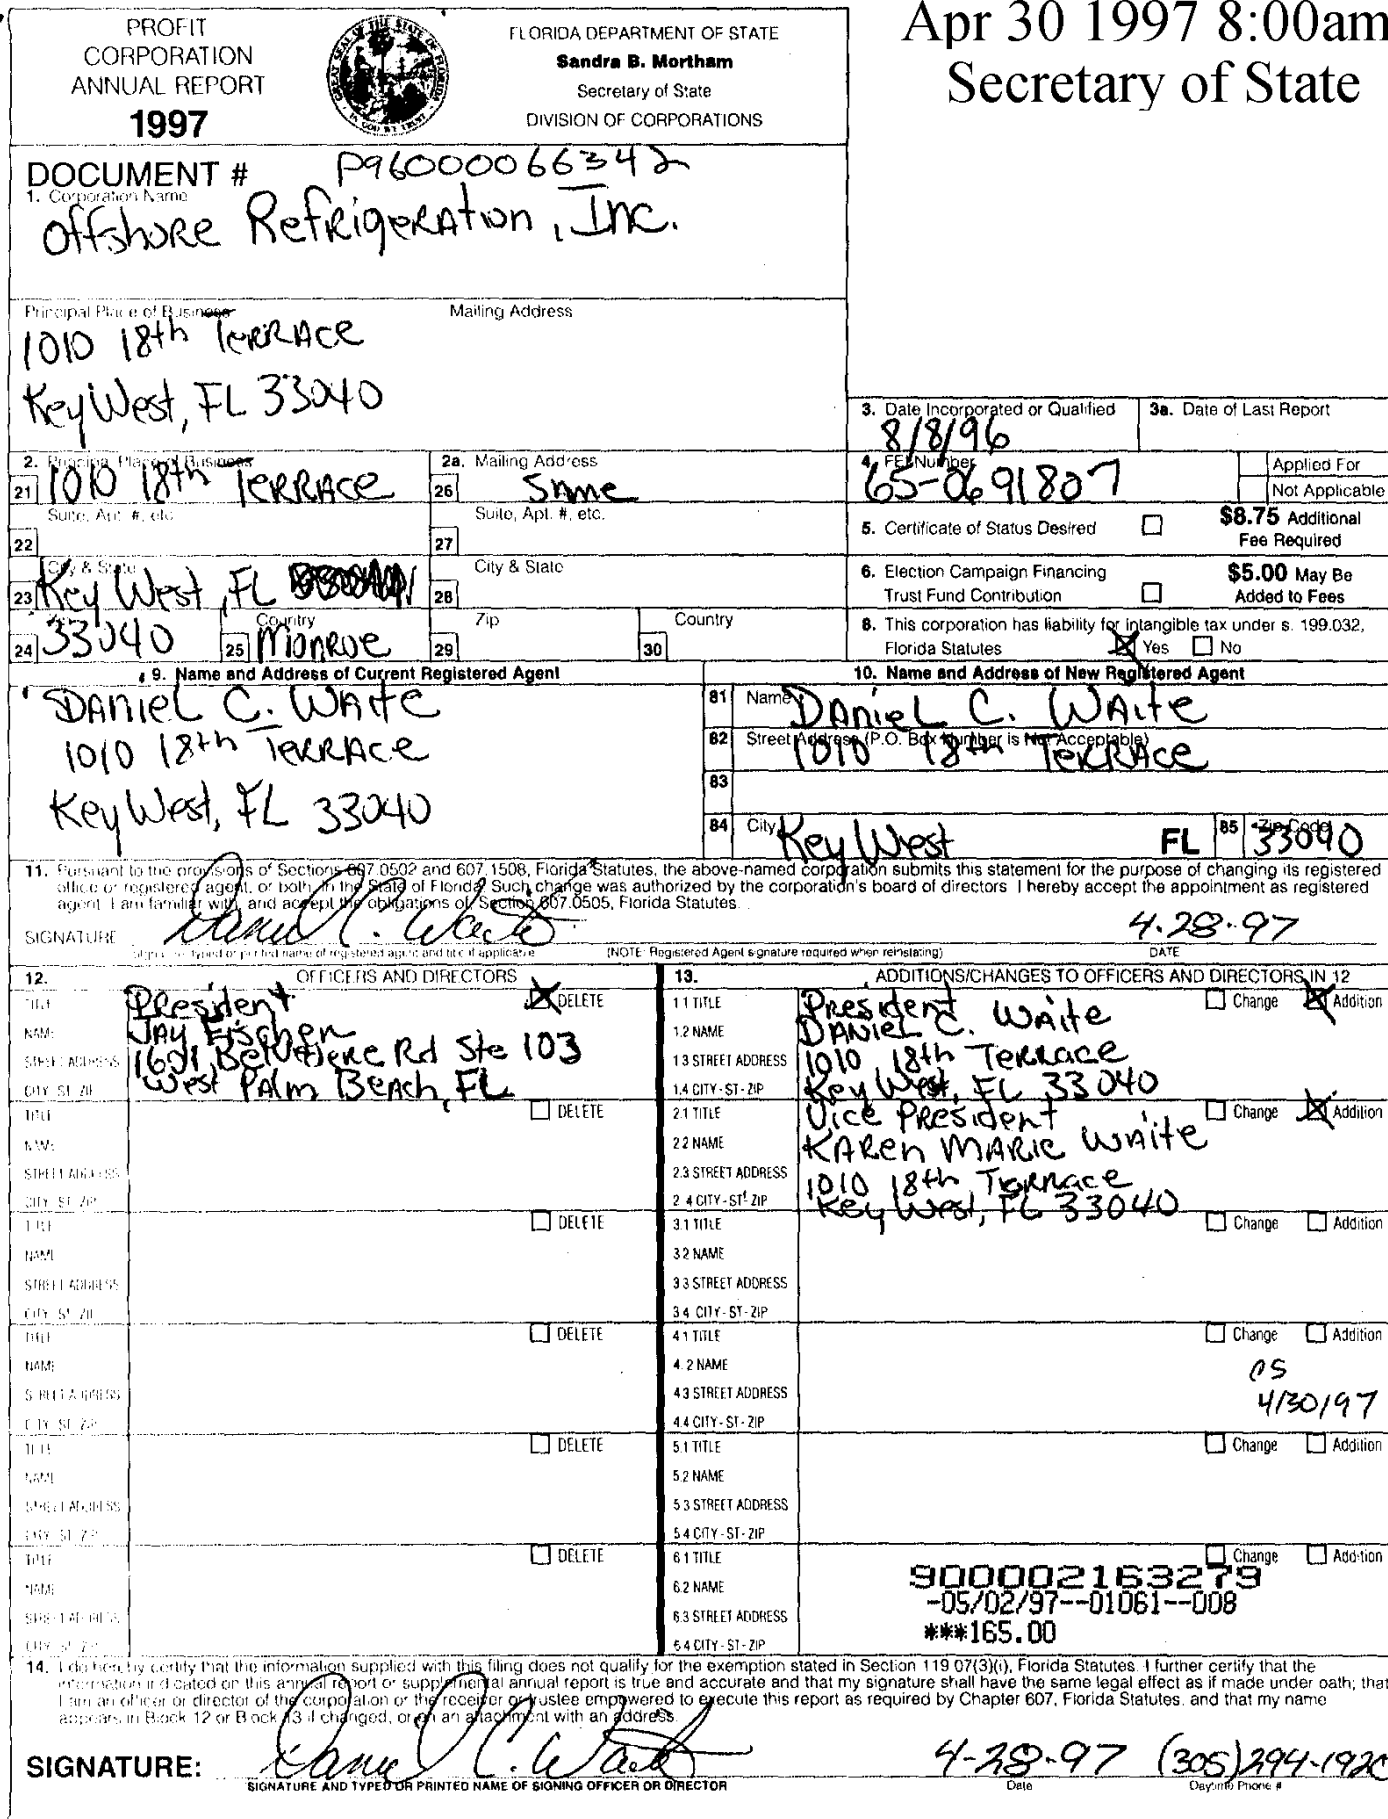 PROFIT
CORPORATION
ANNUAL REPORT
1997
FLORIDA DEPARTMENT OF STATE
Sandra B. Mortham
Secretary of State
DIVISION OF CORPORATIONS
Apr 30 1997 8:00am
Secretary of State
DOCUMENT # P96000066342
1. Corporation Name
Offshore Refrigeration, Inc.
Principal Place of Business Mailing Address
1010 18th Terrace
Key West, FL 33040
3. Date Incorporated or Qualified 3a. Date of Last Report
8/8/96
2. Principal Place of Business 2a. Mailing Address
21 1010 18th Terrace 26 Same
4. FEI Number Applied For
65-0691807 Not Applicable
Suite, Apt. #, etc. Suite, Apt. #, etc.
22 27
5. Certificate of Status Desired $8.75 Additional
Fee Required
City & State City & State
23 Key West, FL 28
6. Election Campaign Financing $5.00 May Be
Trust Fund Contribution Added to Fees
Country Zip Country
24 33040 25 Monroe 29 30
8. This corporation has liability for intangible tax under s. 199.032,
Florida Statutes Yes No
9. Name and Address of Current Registered Agent
Daniel C. Waite
1010 18th Terrace
Key West, FL 33040
10. Name and Address of New Registered Agent
81 Name Daniel C. Waite
82 Street Address (P.O. Box Number is Not Acceptable)
1010 18th Terrace
83
84 City Key West FL 85 Zip Code 33040
11. Pursuant to the provisions of Sections 607.0502 and 607.1508, Florida Statutes, the above-named corporation submits this statement for the purpose of changing its registered
office or registered agent, or both, in the State of Florida. Such change was authorized by the corporation's board of directors. I hereby accept the appointment as registered
agent. I am familiar with, and accept the obligations of, Section 607.0505, Florida Statutes.
SIGNATURE Daniel C. Waite 4-28-97
Signature, typed or printed name of registered agent and title if applicable (NOTE: Registered Agent signature required when reinstating) DATE
12. OFFICERS AND DIRECTORS
TITLE President DELETE
NAME Jay Fischer
STREET ADDRESS 1601 Belvedere Rd Ste 103
CITY-ST-ZIP West Palm Beach, FL
TITLE DELETE
NAME
STREET ADDRESS
CITY-ST-ZIP
TITLE DELETE
NAME
STREET ADDRESS
CITY-ST-ZIP
TITLE DELETE
NAME
STREET ADDRESS
CITY-ST-ZIP
TITLE DELETE
NAME
STREET ADDRESS
CITY-ST-ZIP
TITLE DELETE
NAME
STREET ADDRESS
CITY-ST-ZIP
13. ADDITIONS/CHANGES TO OFFICERS AND DIRECTORS IN 12
1.1 TITLE President Change Addition
1.2 NAME Daniel C. Waite
1.3 STREET ADDRESS 1010 18th Terrace
1.4 CITY-ST-ZIP Key West, FL 33040
2.1 TITLE Vice President Change Addition
2.2 NAME Karen Marie Waite
2.3 STREET ADDRESS 1010 18th Terrace
2.4 CITY-ST-ZIP Key West, FL 33040
3.1 TITLE Change Addition
3.2 NAME
3.3 STREET ADDRESS
3.4 CITY-ST-ZIP
4.1 TITLE Change Addition
4.2 NAME
4.3 STREET ADDRESS
4.4 CITY-ST-ZIP
4/30/97
5.1 TITLE Change Addition
5.2 NAME
5.3 STREET ADDRESS
5.4 CITY-ST-ZIP
6.1 TITLE Change Addition
6.2 NAME 900002163279
6.3 STREET ADDRESS -05/02/97--01061--008
6.4 CITY-ST-ZIP ***165.00
14. I do hereby certify that the information supplied with this filing does not qualify for the exemption stated in Section 119.07(3)(i), Florida Statutes. I further certify that the
information indicated on this annual report or supplemental annual report is true and accurate and that my signature shall have the same legal effect as if made under oath; that
I am an officer or director of the corporation or the receiver or trustee empowered to execute this report as required by Chapter 607, Florida Statutes, and that my name
appears in Block 12 or Block 13 if changed, or on an attachment with an address.
SIGNATURE: Daniel C. Waite 4-28-97 (305)294-1920
SIGNATURE AND TYPED OR PRINTED NAME OF SIGNING OFFICER OR DIRECTOR Date Daytime Phone #